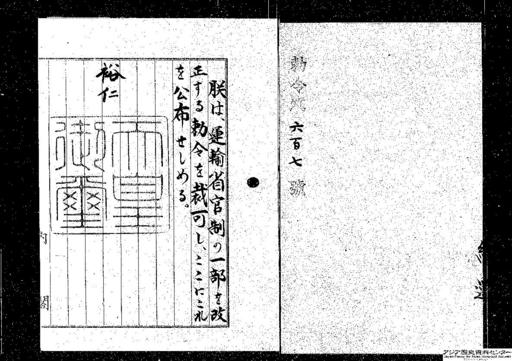 勅令第六百七號
朕は、運輸省官制の一部を改
正する勅令を裁可し、ここにこれ
を公布せしめる。
裕仁
天皇
御璽
内閣
アジア歴史資料センター